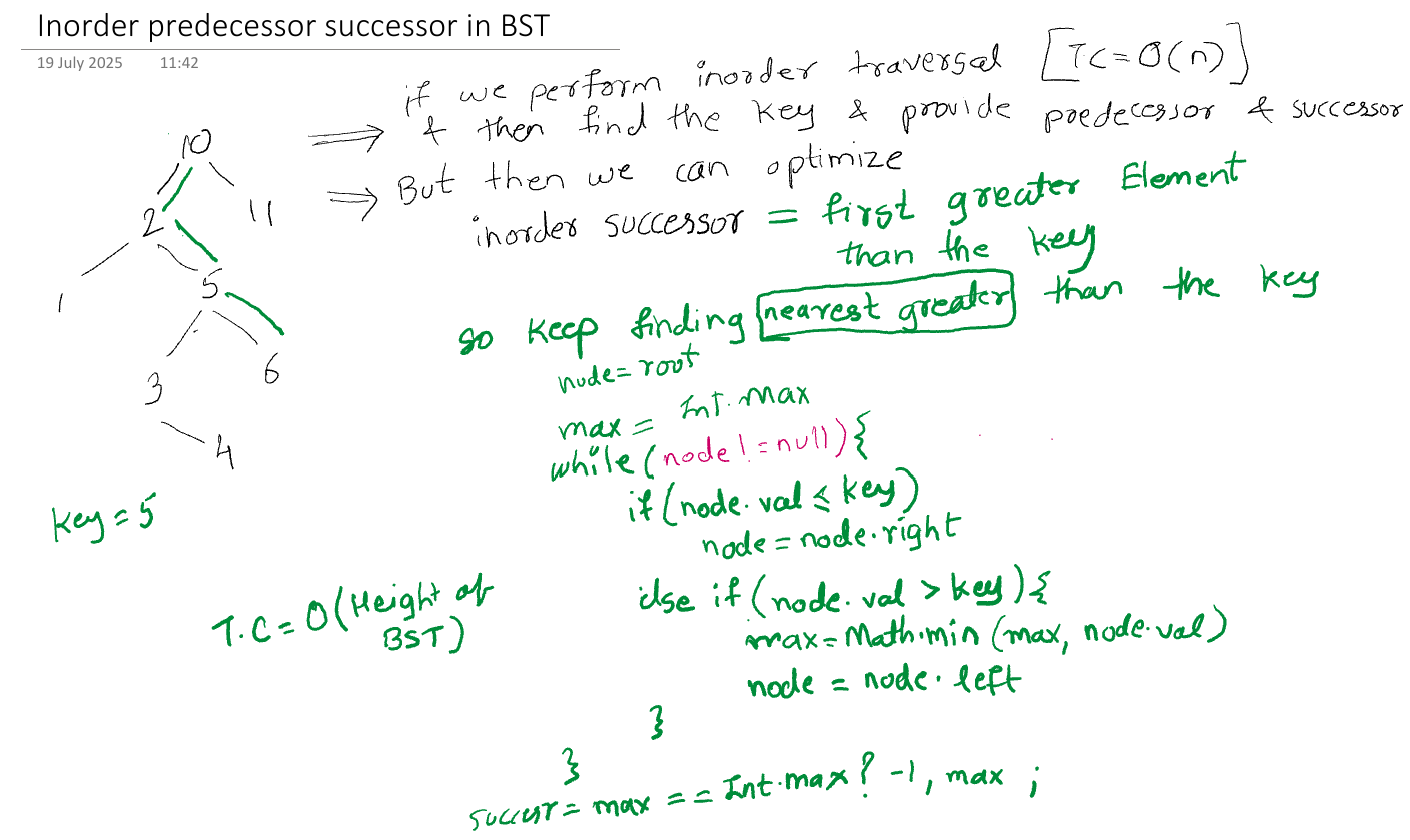 Inorder predecessor successor in BST
19 July 2025 11:42
if we perform inorder traversal [T.C = O(n)]
& then find the key & provide predecessor & successor
But then we can optimize
inorder successor = first greater Element
than the key
so keep finding nearest greater than the key
10
2
11
1
5
3
6
4
key = 5
T.C = O(Height of
BST)
node = root
max = Int.max
while (node != null) {
if (node.val ≤ key)
node = node.right
else if (node.val > key) {
max = Math.min (max, node.val)
node = node.left
}
}
succesr = max == Int.max ? -1, max ;